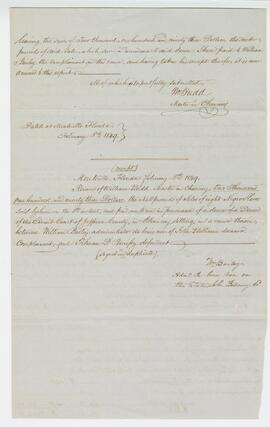 leaving the sum of Two thousand, one hundred and ninety three Dollars the nett
proceeds of said Sale, which sum I received and have paid to William
Bailey, the complainant in the cause, and having taken his receipt therefor, it is now
annexed to this report.
All of which is respectfully submitted.
Wm Budd
Master in Chancery
Dated at Monticello Florida
February 5th 1849.
(receipt)
Monticello, Florida February 5th 1849.
Received of William Budd, Master in Chancery, Two Thousand
one hundred and ninety three Dollars, the nett proceeds of sales of eight Negroes
sold by him on the 5th instant, and paid over in pursuance of a decree
of the Circuit Court of Jefferson County, in Chancery sitting, in a cause therein
between William Bailey administrator de bonis non of John William
Complainant, and defendant
(signed in duplicate)
Wm Bailey
Adm. de bonis non on
the estate